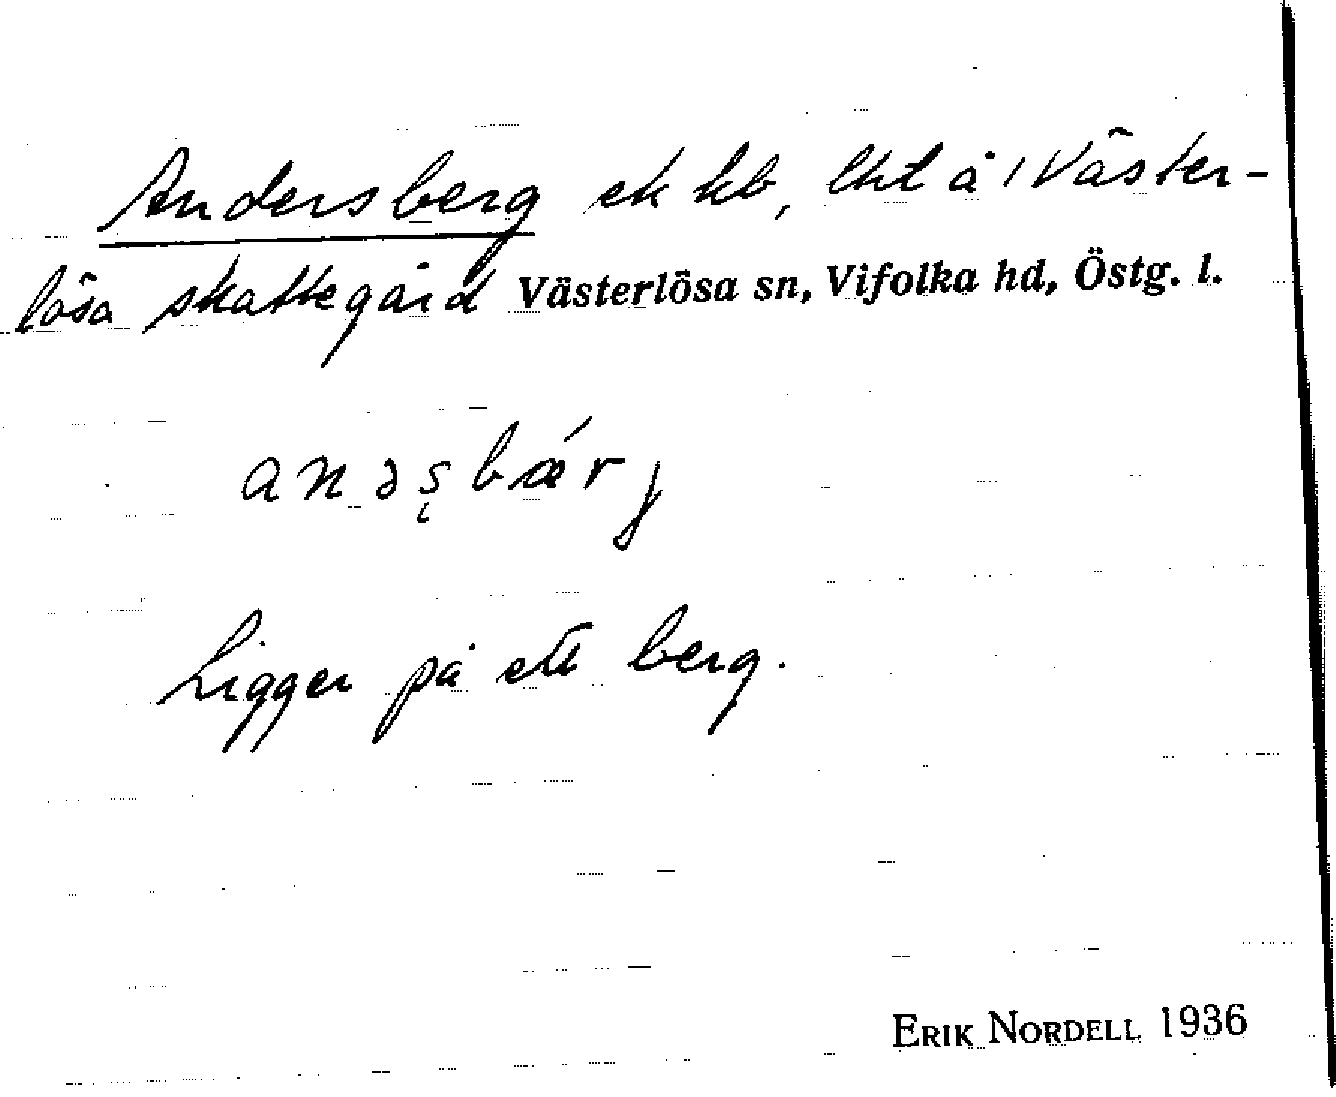 Andersberg ek hb, lht å 1 Väster-
lösa skattegård Västerlösa sn, Vifolka hd, Östg. l.
anəʂbǽrj
Ligger på ett berg.
ERIK NORDELL 1936